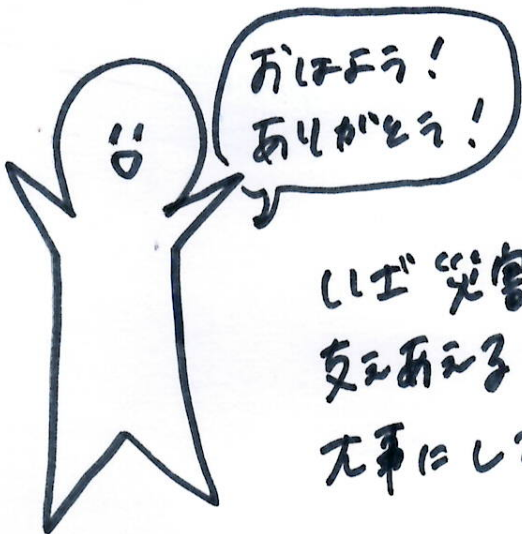 おはよう!
ありがとう!
いざ 災害
支えあえる
大事にし